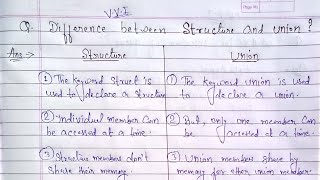 V.V.I
Q. Difference between Structure and union?
Ans → Structure Union
① The keyword struct is used to declare a structure
① The keyword union is used to declare a union.
② Individual member can be accessed at a time.
② But, only one member can be accessed at a time.
③ Structure members don't share their memory.
③ Union members share by memory for other union member